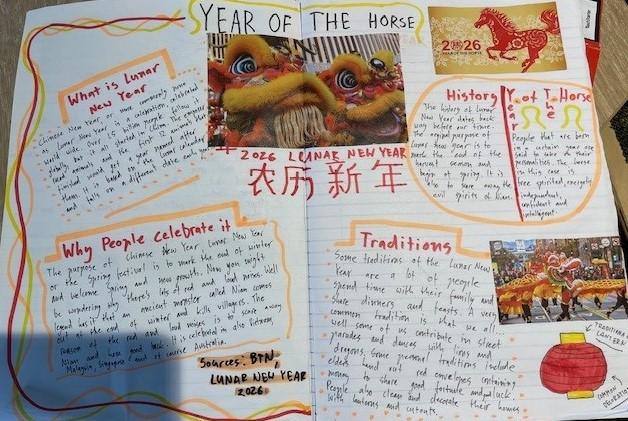 YEAR OF THE HORSE
2026
YEAR OF THE HORSE
What is Lunar
New Year
Chinese New Year, or more commonly known
Lunar New Year is a celebration celebrated
world wide. Over 1.5 billion people follow
but it all started in China. The emperor
first 12 animals that
finished would get a year named after
them.
and falls on a different date each
2026 LUNAR NEW YEAR
农历新年
History
The history of Lunar
New Year dates back
way before our time.
The original purpose of
Lunar new year is to
mark the end of the
harvest season and
begin of spring. It is
also to scare away the
evil spirits of Nian.
Year of The Horse
People that are born
in a certain year are
said to take on their
personalities. The horse
in this case is
free spirited, energetic
independent,
confident and
intelligent.
Why People Celebrate it
The purpose of Chinese New Year, Lunar New Year
or the Spring festival is to mark the end of winter
and welcome spring and new growth. Now you might
be wondering why there's lots of red and loud noises. Well
legend has it that an ancient monster called Nian comes
out at the end of winter and kills villagers. The
reason of the red and loud noises is to scare away
Nian and have good luck. It is celebrated in also Vietnam,
Malaysia, Singapore and of course Australia.
Sources: BTN,
LUNAR NEW YEAR
2026
Traditions
Some traditions of the Lunar New
Year are a lot of people
spend time with their family and
share dinners and feasts. A very
common tradition is that we all
well some of us contribute in street
parades and dances with lions and
dragons. Some personal traditions include
elders hand out red envelopes containing
money to share good fortune and luck.
People also clean and decorate their homes
with lanterns and cutouts.
TRADITIONAL
LANTERN
COMMON
DECORATION